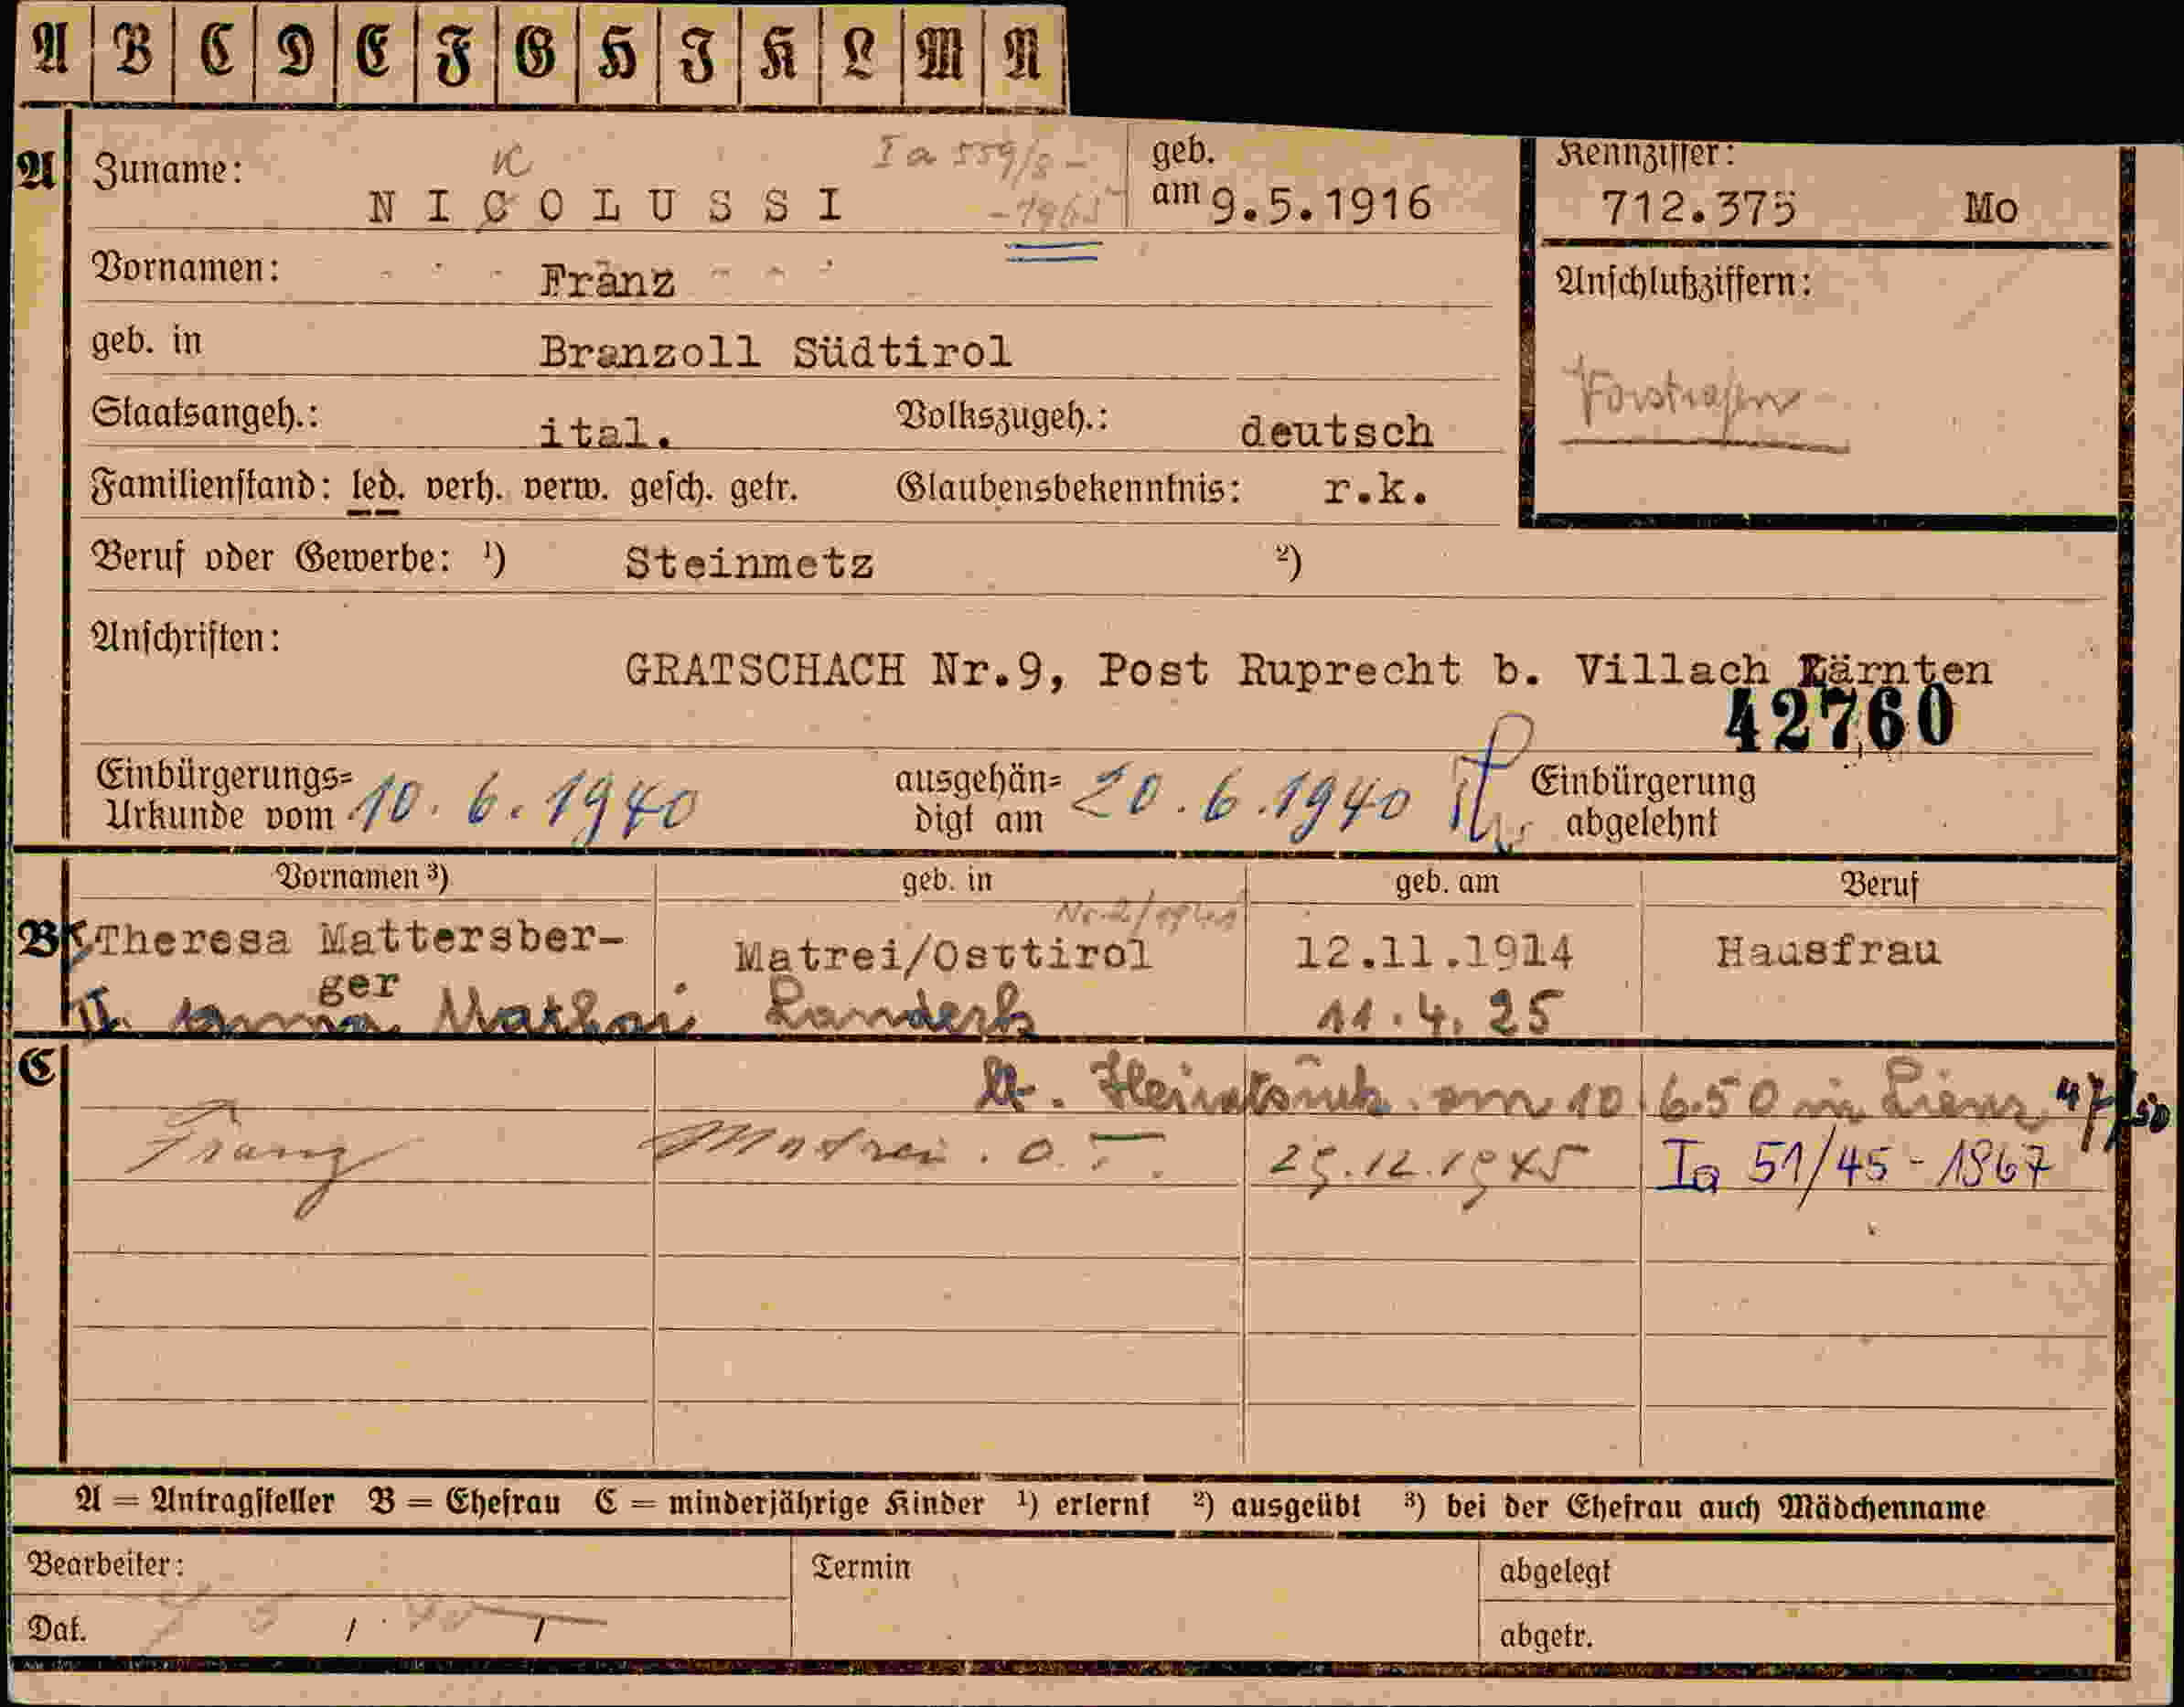 A B C D E F G H I K L M N
A Zuname: K Ia 559/8- geb. Kennziffer:
NICOLUSSI -1963 am 9.5.1916 712.375 Mo
Vornamen: Franz Anschlußziffern:
geb. in Branzoll Südtirol
Staatsangeh.: ital. Volkszugeh.: deutsch Vorstrafen
Familienstand: led. verh. verw. gesch. getr. Glaubensbekenntnis: r.k.
Beruf oder Gewerbe: ¹) Steinmetz ²)
Anschriften:
GRATSCHACH Nr.9, Post Ruprecht b. Villach Kärnten
42760
Einbürgerungs= ausgehän= Einbürgerung
Urkunde vom 10.6.1940 digt am 20.6.1940 abgelehnt
Vornamen ³) geb. in geb. am Beruf
B Theresa Mattersber- Matrei/Osttirol 12.11.1914 Hausfrau
ger
II. Anna Landeck 11.4.25
C
lt. Heiratsurk. am 10.6.50 in Lienz 47/50
Franz Matrei. O.T. 25.12.1945 Ia 51/45-1967
A = Antragsteller B = Ehefrau C = minderjährige Kinder ¹) erlernt ²) ausgeübt ³) bei der Ehefrau auch Mädchenname
Bearbeiter: Termin abgelegt
Dat. / / abgetr.